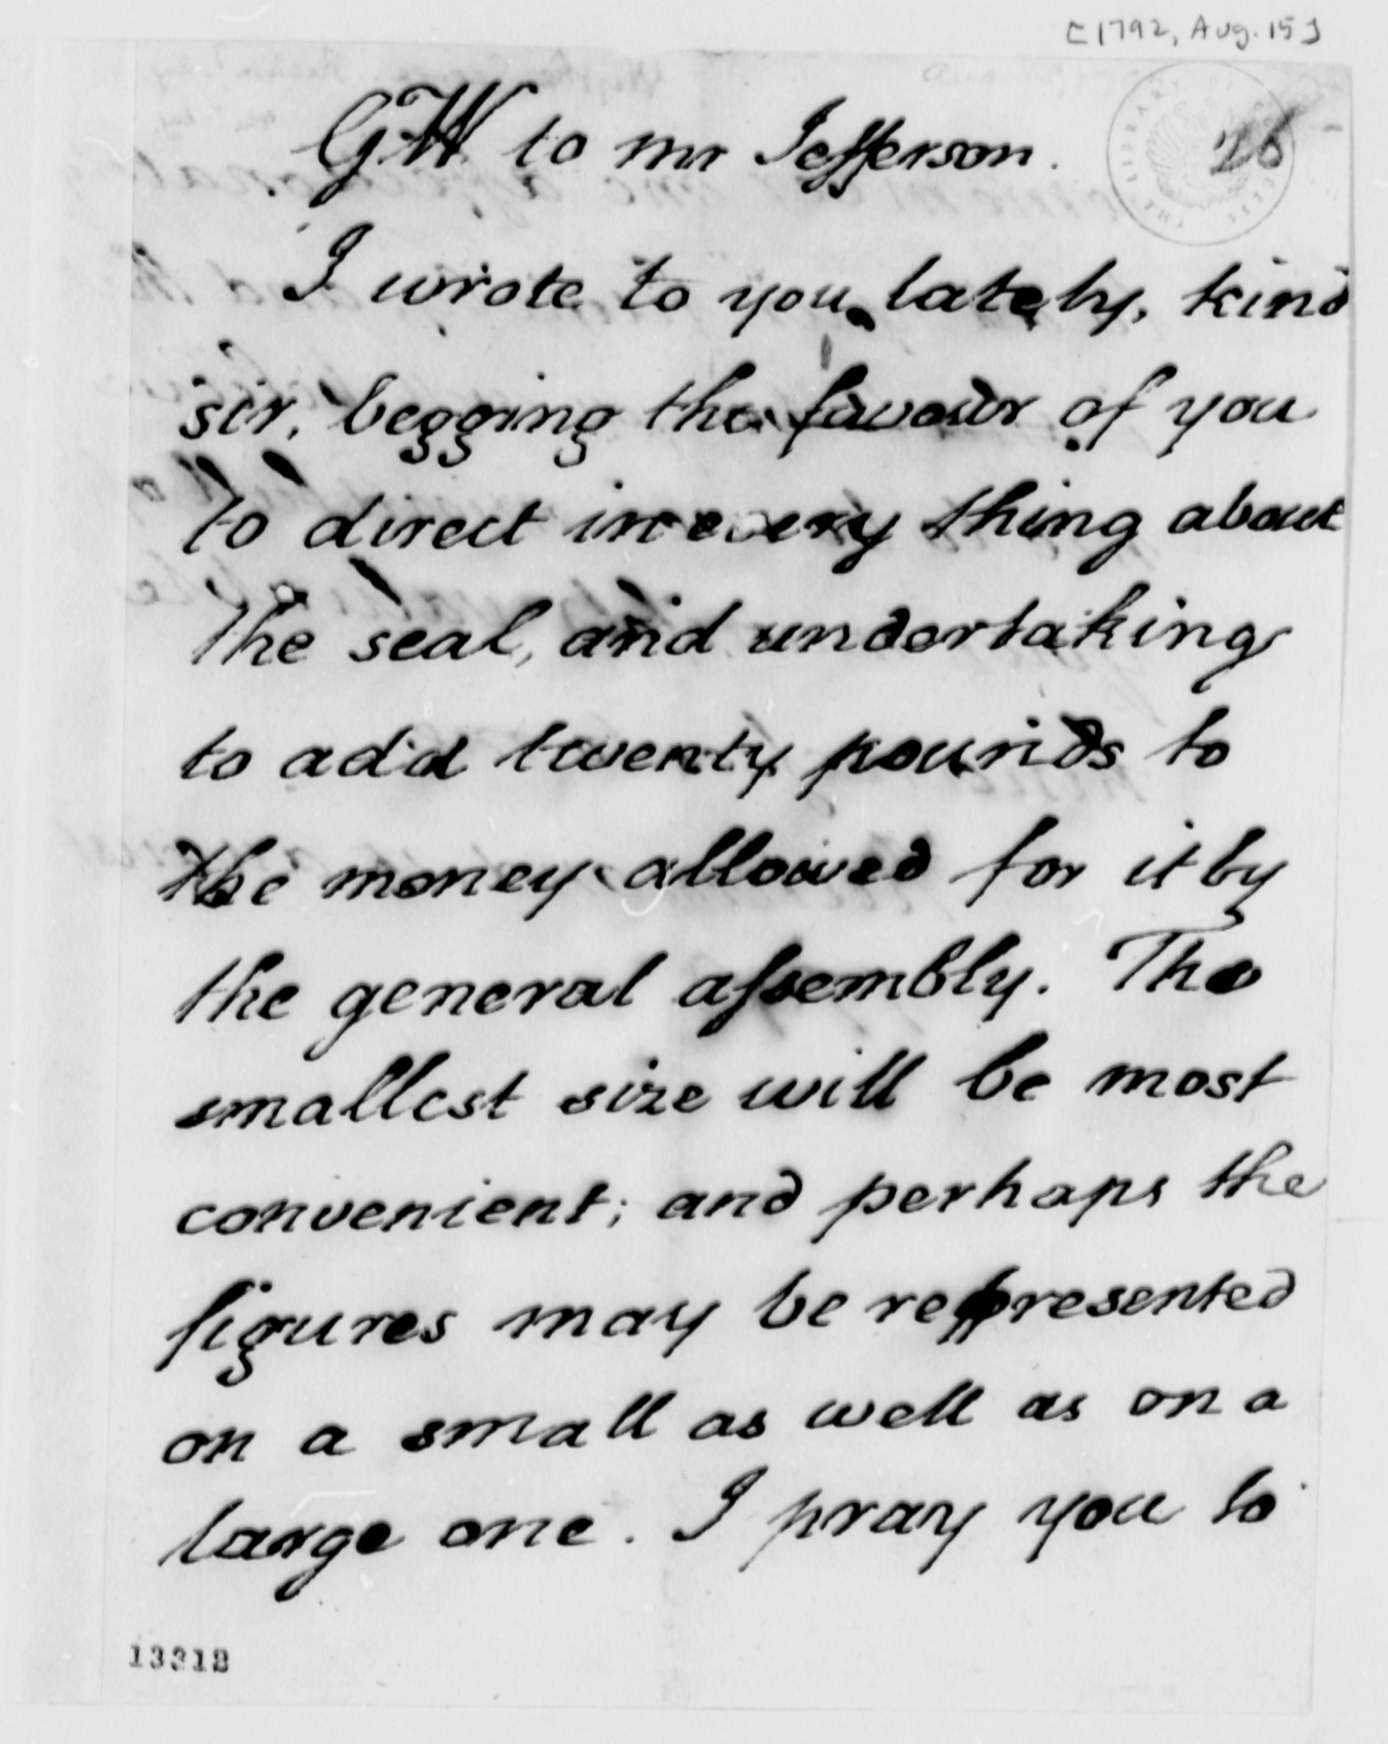 [1792, Aug. 15]
GW to mr Jefferson.
26
I wrote to you lately, kind
sir, begging the favour of you
to direct in every thing about
the seal, and undertaking
to add twenty pounds to
the money allowed for it by
the general assembly. The
smallest size will be most
convenient; and perhaps the
figures may be represented
on a small as well as on a
large one. I pray you to
13318